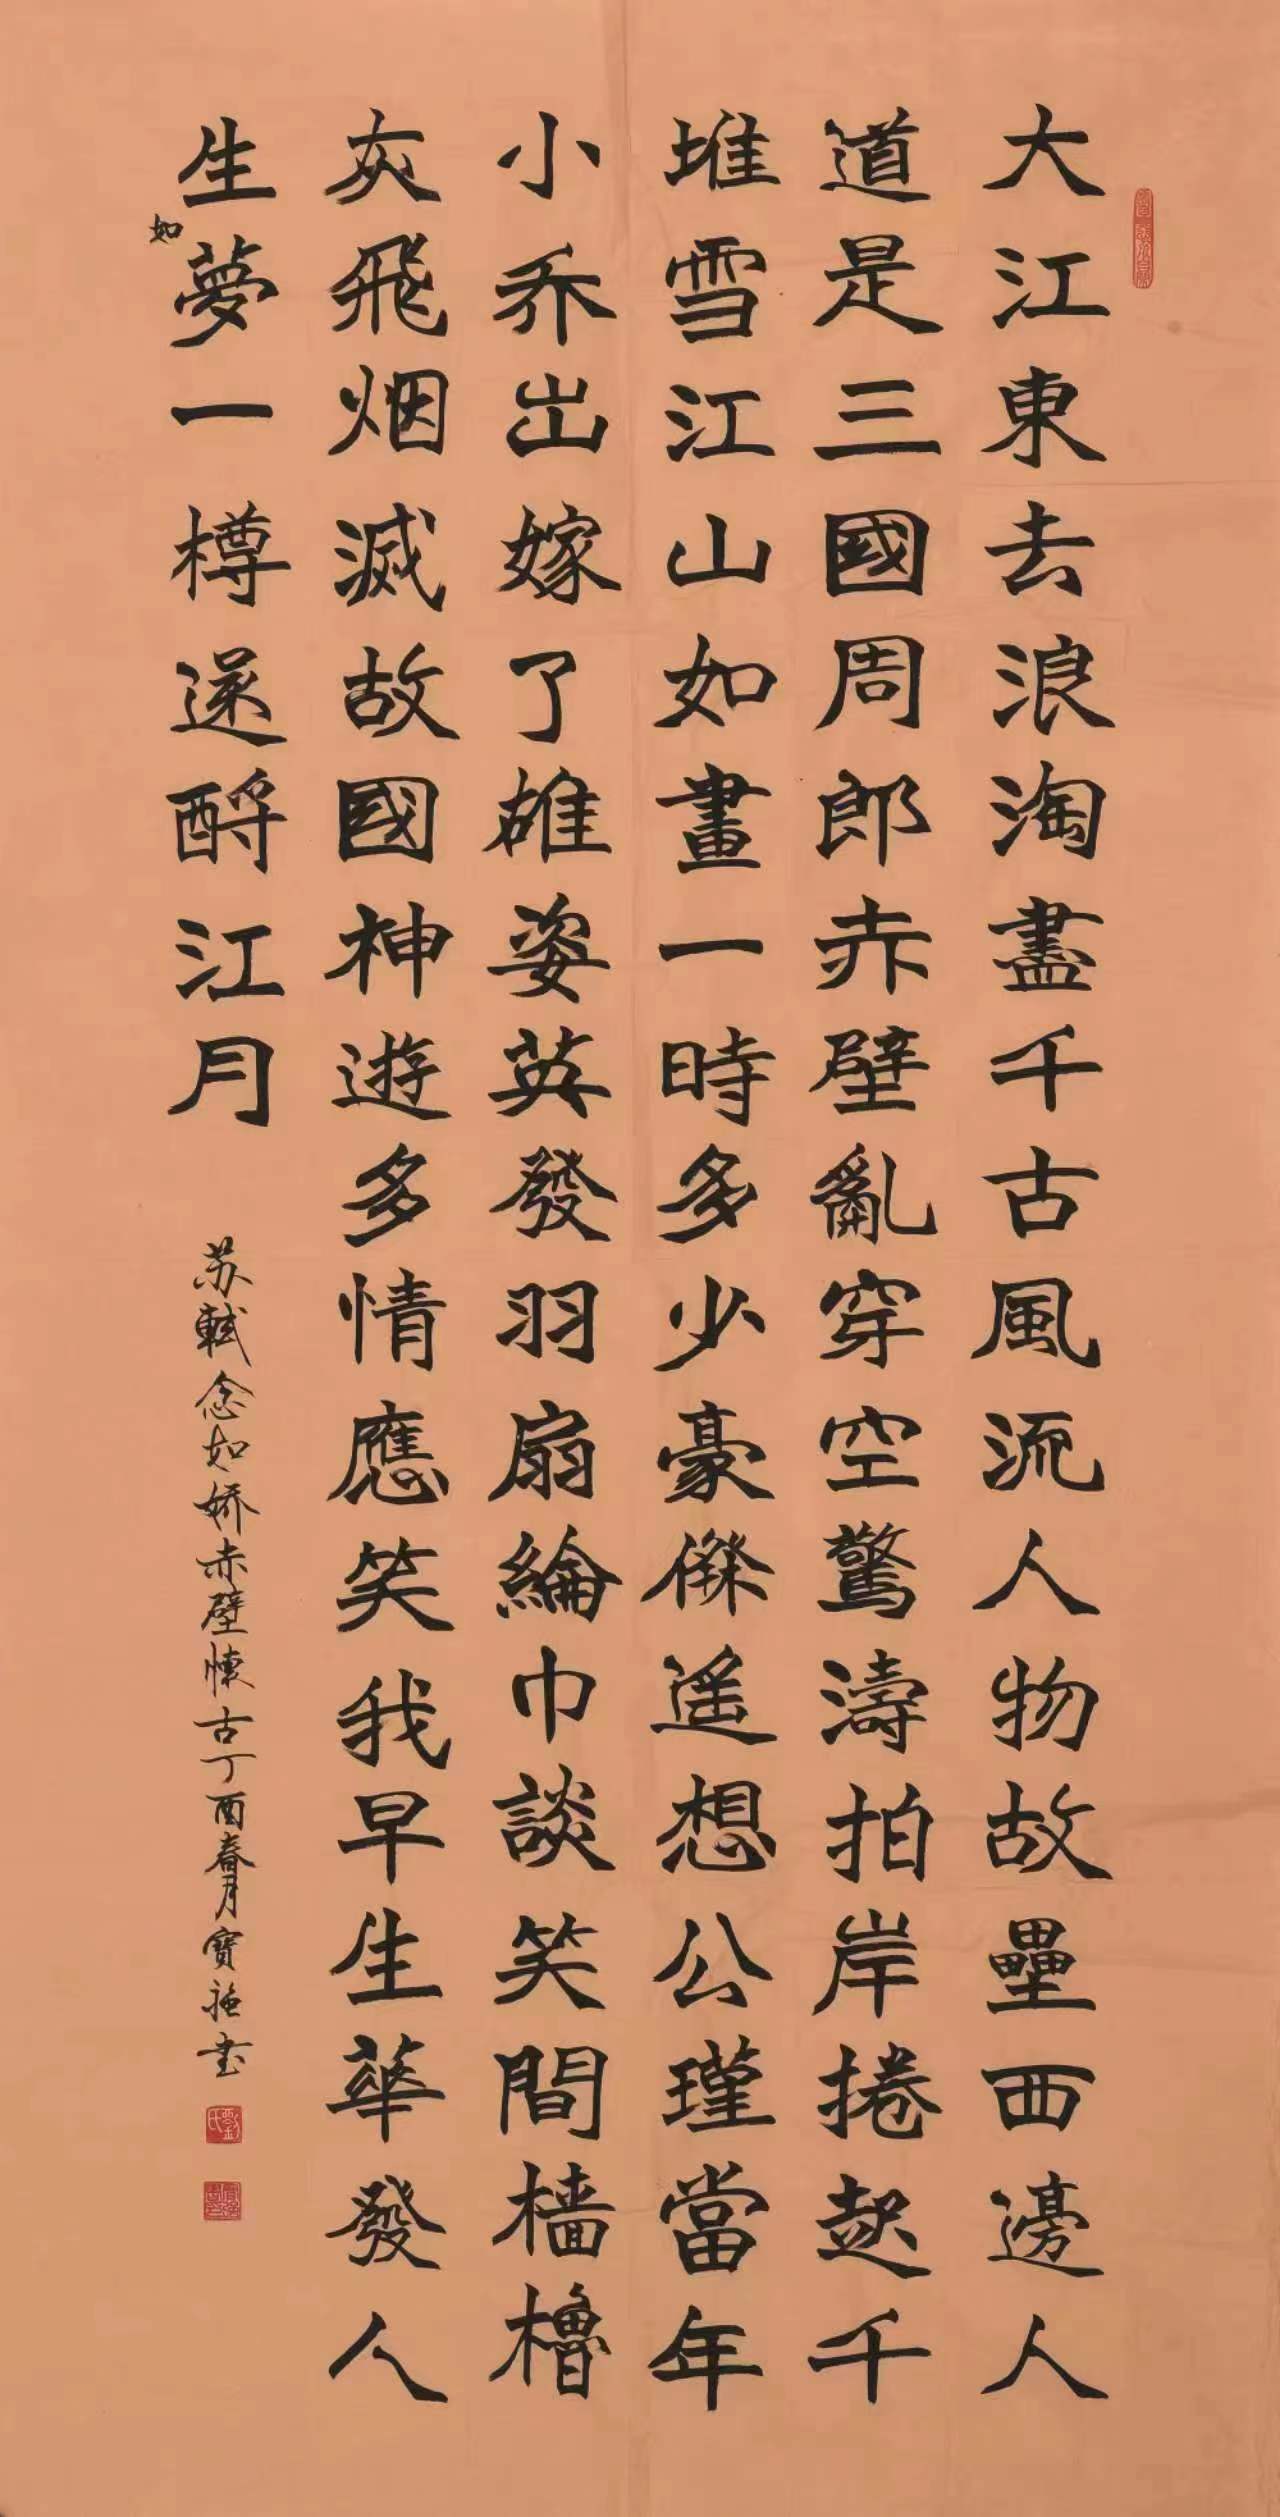 大江東去浪淘盡千古風流人物故壘西邊人
道是三國周郎赤壁亂穿空驚濤拍岸捲起千
堆雪江山如畫一時多少豪傑遥想公瑾當年
小乔出嫁了雄姿英發羽扇綸巾談笑間樯櫓
灰飛烟滅故國神遊多情應笑我早生華發人
生如夢一樽还酹江月
苏軾念如娇赤壁懷古丁酉春月寶书
劉氏